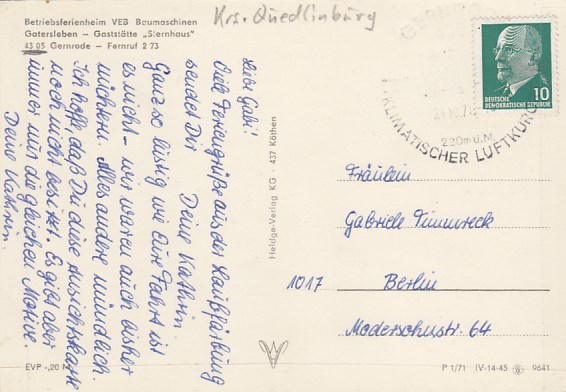 Krs. Quedlinburg
Betriebsferienheim VEB Baumaschinen
Gatersleben - Gaststätte „Sternhaus"
43 05 Gernrode - Fernruf 2 73
Liebe Gabi!
Viele Feriengrüße aus der
sendet Dir
Deine Kathrin
Ganz so lustig wie Eure Fahrt ist
es nicht - wir waren auch bisher
nüchtern. Alles andere mündlich.
Ich hoffe, daß Du diese Ansichtskarte
noch nicht besitzt. Es gibt aber
immer nur die gleichen Motive.
Deine Kathrin.
EVP -,20 M
Heldge-Verlag KG · 437 Köthen
DEUTSCHE
DEMOKRATISCHE REPUBLIK
10
GERNRODE
230m ü.M.
KLIMATISCHER LUFTKURORT
Fräulein
Gabriele Timmreck
1017 Berlin
Modersohnstr. 64
P 1/71 IV-14-45 9641